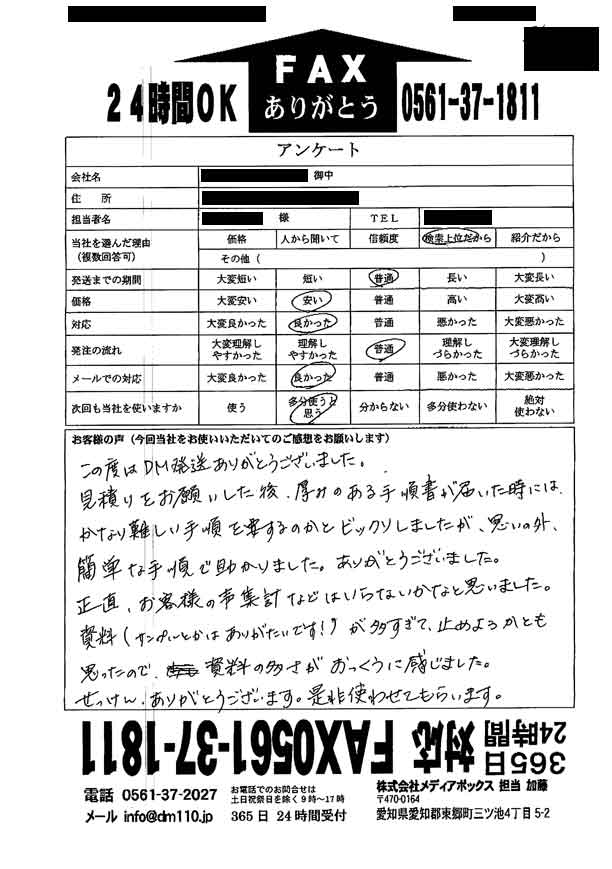 FAX
ありがとう
24時間OK
0561-37-1811
アンケート
会社名 御中
住 所
担当者名 様 TEL
当社を選んだ理由
(複数回答可)
価格 人から聞いて 信頼度 検索上位だから 紹介だから
その他 ( )
発送までの期間 大変短い 短い 普通 長い 大変長い
価格 大変安い 安い 普通 高い 大変高い
対応 大変良かった 良かった 普通 悪かった 大変悪かった
発注の流れ 大変理解しやすかった 理解しやすかった 普通 理解しづらかった 大変理解しづらかった
メールでの対応 大変良かった 良かった 普通 悪かった 大変悪かった
次回も当社を使いますか 使う 多分使うと思う 分からない 多分使わない 絶対使わない
お客様の声(今回当社をお使いいただいてのご感想をお願いします)
この度はDM発送ありがとうございました。
見積りをお願いした後、厚みのある手順書が届いた時には、
かなり難しい手順を要するのかとビックリしましたが、思いの外、
簡単な手順で助かりました。ありがとうございました。
正直、お客様の声集計などはいらないかなと思いました。
資料(サンプルとかはありがたいです!)が多すぎて、止めようかとも
思ったので、資料の多さがおっくうに感じました。
せっけん、ありがとうございます。是非使わせてもらいます。
365日
24時間
対応 FAX0561-37-1811
電話 0561-37-2027
メール info@dm110.jp
お電話でのお問合せは
土日祝祭日を除く9時~17時
365日 24時間受付
株式会社メディアボックス 担当 加藤
〒470-0164
愛知県愛知郡東郷町三ツ池4丁目5-2